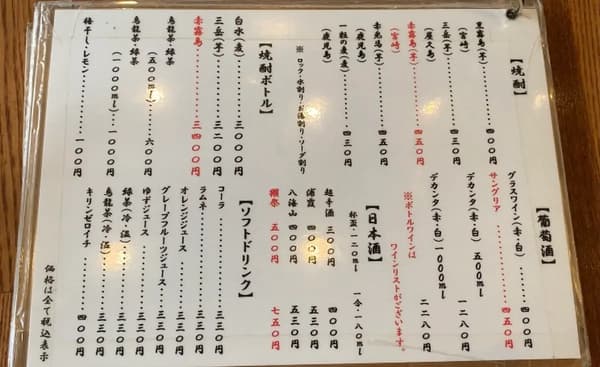 【焼酎】
黒霧島(芋)‥‥‥‥‥四〇〇円
(宮崎)
三岳(芋)‥‥‥‥‥四三〇円
(屋久島)
赤霧島(芋)‥‥‥‥‥四五〇円
(宮崎)
赤兎馬(芋)‥‥‥‥‥四五〇円
(鹿児島)
一粒の麦(麦)‥‥‥‥‥四三〇円
(鹿児島)
※ ロック・水割り・お湯割り・ソーダ割り
【焼酎ボトル】
白水(麦)‥‥‥‥‥三〇〇〇円
三岳(芋)‥‥‥‥‥三二〇〇円
赤霧島‥‥‥‥‥三四〇〇円
烏龍茶・緑茶
(五〇〇ml)‥‥‥‥‥六〇〇円
烏龍茶・緑茶
(一〇〇〇ml)‥‥‥‥‥一〇〇〇円
梅干し・レモン‥‥‥‥‥一〇〇円
【葡萄酒】
グラスワイン(赤・白)‥‥四〇〇円
サングリア‥‥‥‥‥四五〇円
デカンタ(赤・白) 五〇〇ml 一二八〇円
デカンタ(赤・白) 一〇〇〇ml 二二八〇円
※ボトルワインは
ワインリストがございます。
【日本酒】
杯盃・一二〇ml 一合・一八〇ml
超辛酒 三〇〇円 四〇〇円
浦霞 四〇〇円 五三〇円
八海山 四〇〇円 五三〇円
獺祭 五〇〇円 七五〇円
【ソフトドリンク】
コーラ‥‥‥‥‥三三〇円
ラムネ‥‥‥‥‥三三〇円
オレンジジュース‥‥‥‥‥三三〇円
グレープフルーツジュース‥‥三三〇円
ゆずジュース‥‥‥‥‥三三〇円
緑茶(冷・温)‥‥‥‥‥三三〇円
烏龍茶(冷・温)‥‥‥‥‥三三〇円
キリンゼロイチ‥‥‥‥‥四〇〇円
価格は全て税込表示